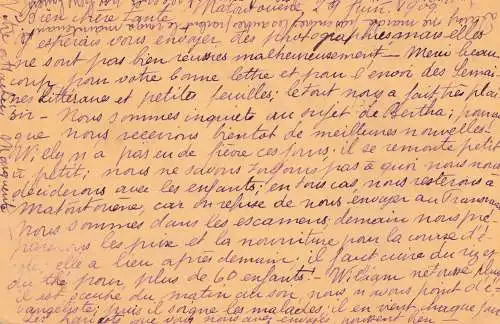 Matoutouène 29 Juin 1909
Bien chère Tante
J'espérais vous envoyer des photographies mais elles
ne sont pas bien réussies malheureusement — Merci beau
coup pour votre bonne lettre et pour l'envoi des Semai
nes littéraires et petites feuilles; le tout nous a fait très plai
sir — Nous sommes inquiets au sujet de Bertha;
que nous recevrons bientôt de meilleures nouvelles —
Willy n'a pas eu de fièvre ces jours; il se remonte petit
à petit; nous ne savons toujours pas à quoi nous nous
déciderons avec les enfants; en tous cas, nous resterons à
Matoutouène, car on refuse de nous envoyer au Transvaal
Nous sommes dans les examens; demain nous pré
parerons les prix et la nourriture pour la course d'é
cole; elle a lieu après demain; il faut cuire du riz et
du thé pour plus de 60 enfants! — William plus
il est occupé du matin au soir, nous n'avons point d'é
vangéliste; puis il soigne les malades; il en vient chaque jour
que vous nous avez envoyés